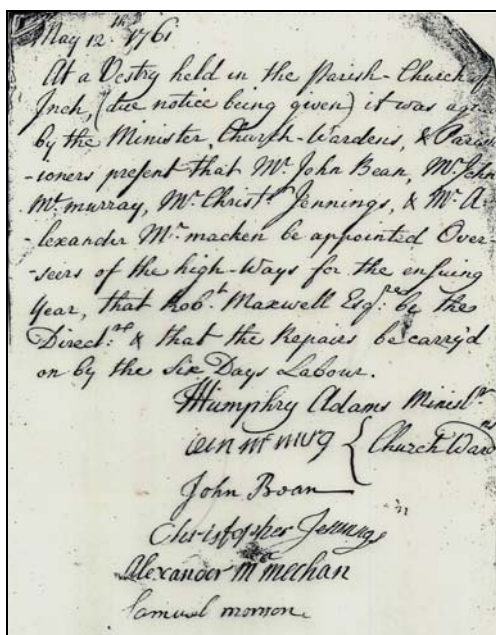 May 12th. 1761
At a Vestry held in the Parish-Church of
Inch, (due notice being given) it was agr
by the Minister, Church-Wardens, & Parish
-ioners present that Mr. John Bean, Mr. John
Mc. murray, Mr. Christr. Jennings, & Mr. A-
-lexander Mc. macken be appointed Over-
-seers of the high-Ways for the ensuing
Year, that Robt. Maxwell Esqr. be the
Directr. & that the Repairs be carry'd
on by the Six Days Labour.
Humphry Adams Ministr
Church Wardns
John Bean
Christopher Jennings
Alexander Mc mechan
Samuel